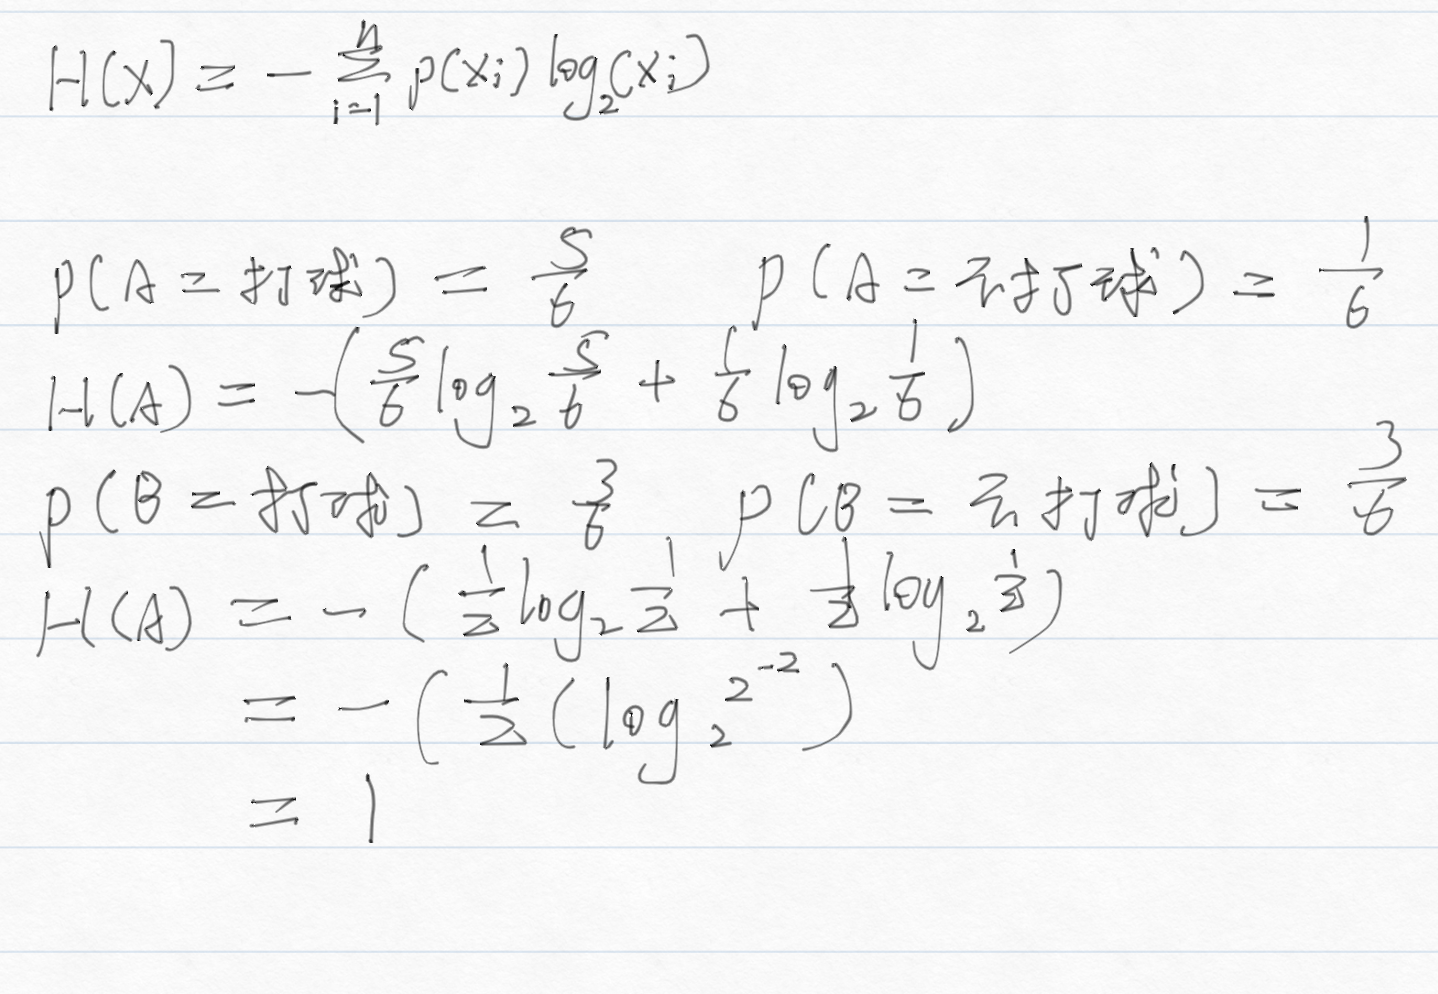 H(X) = - \sum_{i=1}^{n} p(x_i) log_2(x_i)
P(A = 打球) = 5/6 P(A = 不打球) = 1/6
H(A) = -(5/6 log_2 5/6 + 1/6 log_2 1/6)
P(B = 打球) = 3/6 P(B = 不打球) = 3/6
H(A) = -(1/2 log_2 1/2 + 1/2 log_2 1/2)
= -(1/2(log_2 2^{-2})
= 1